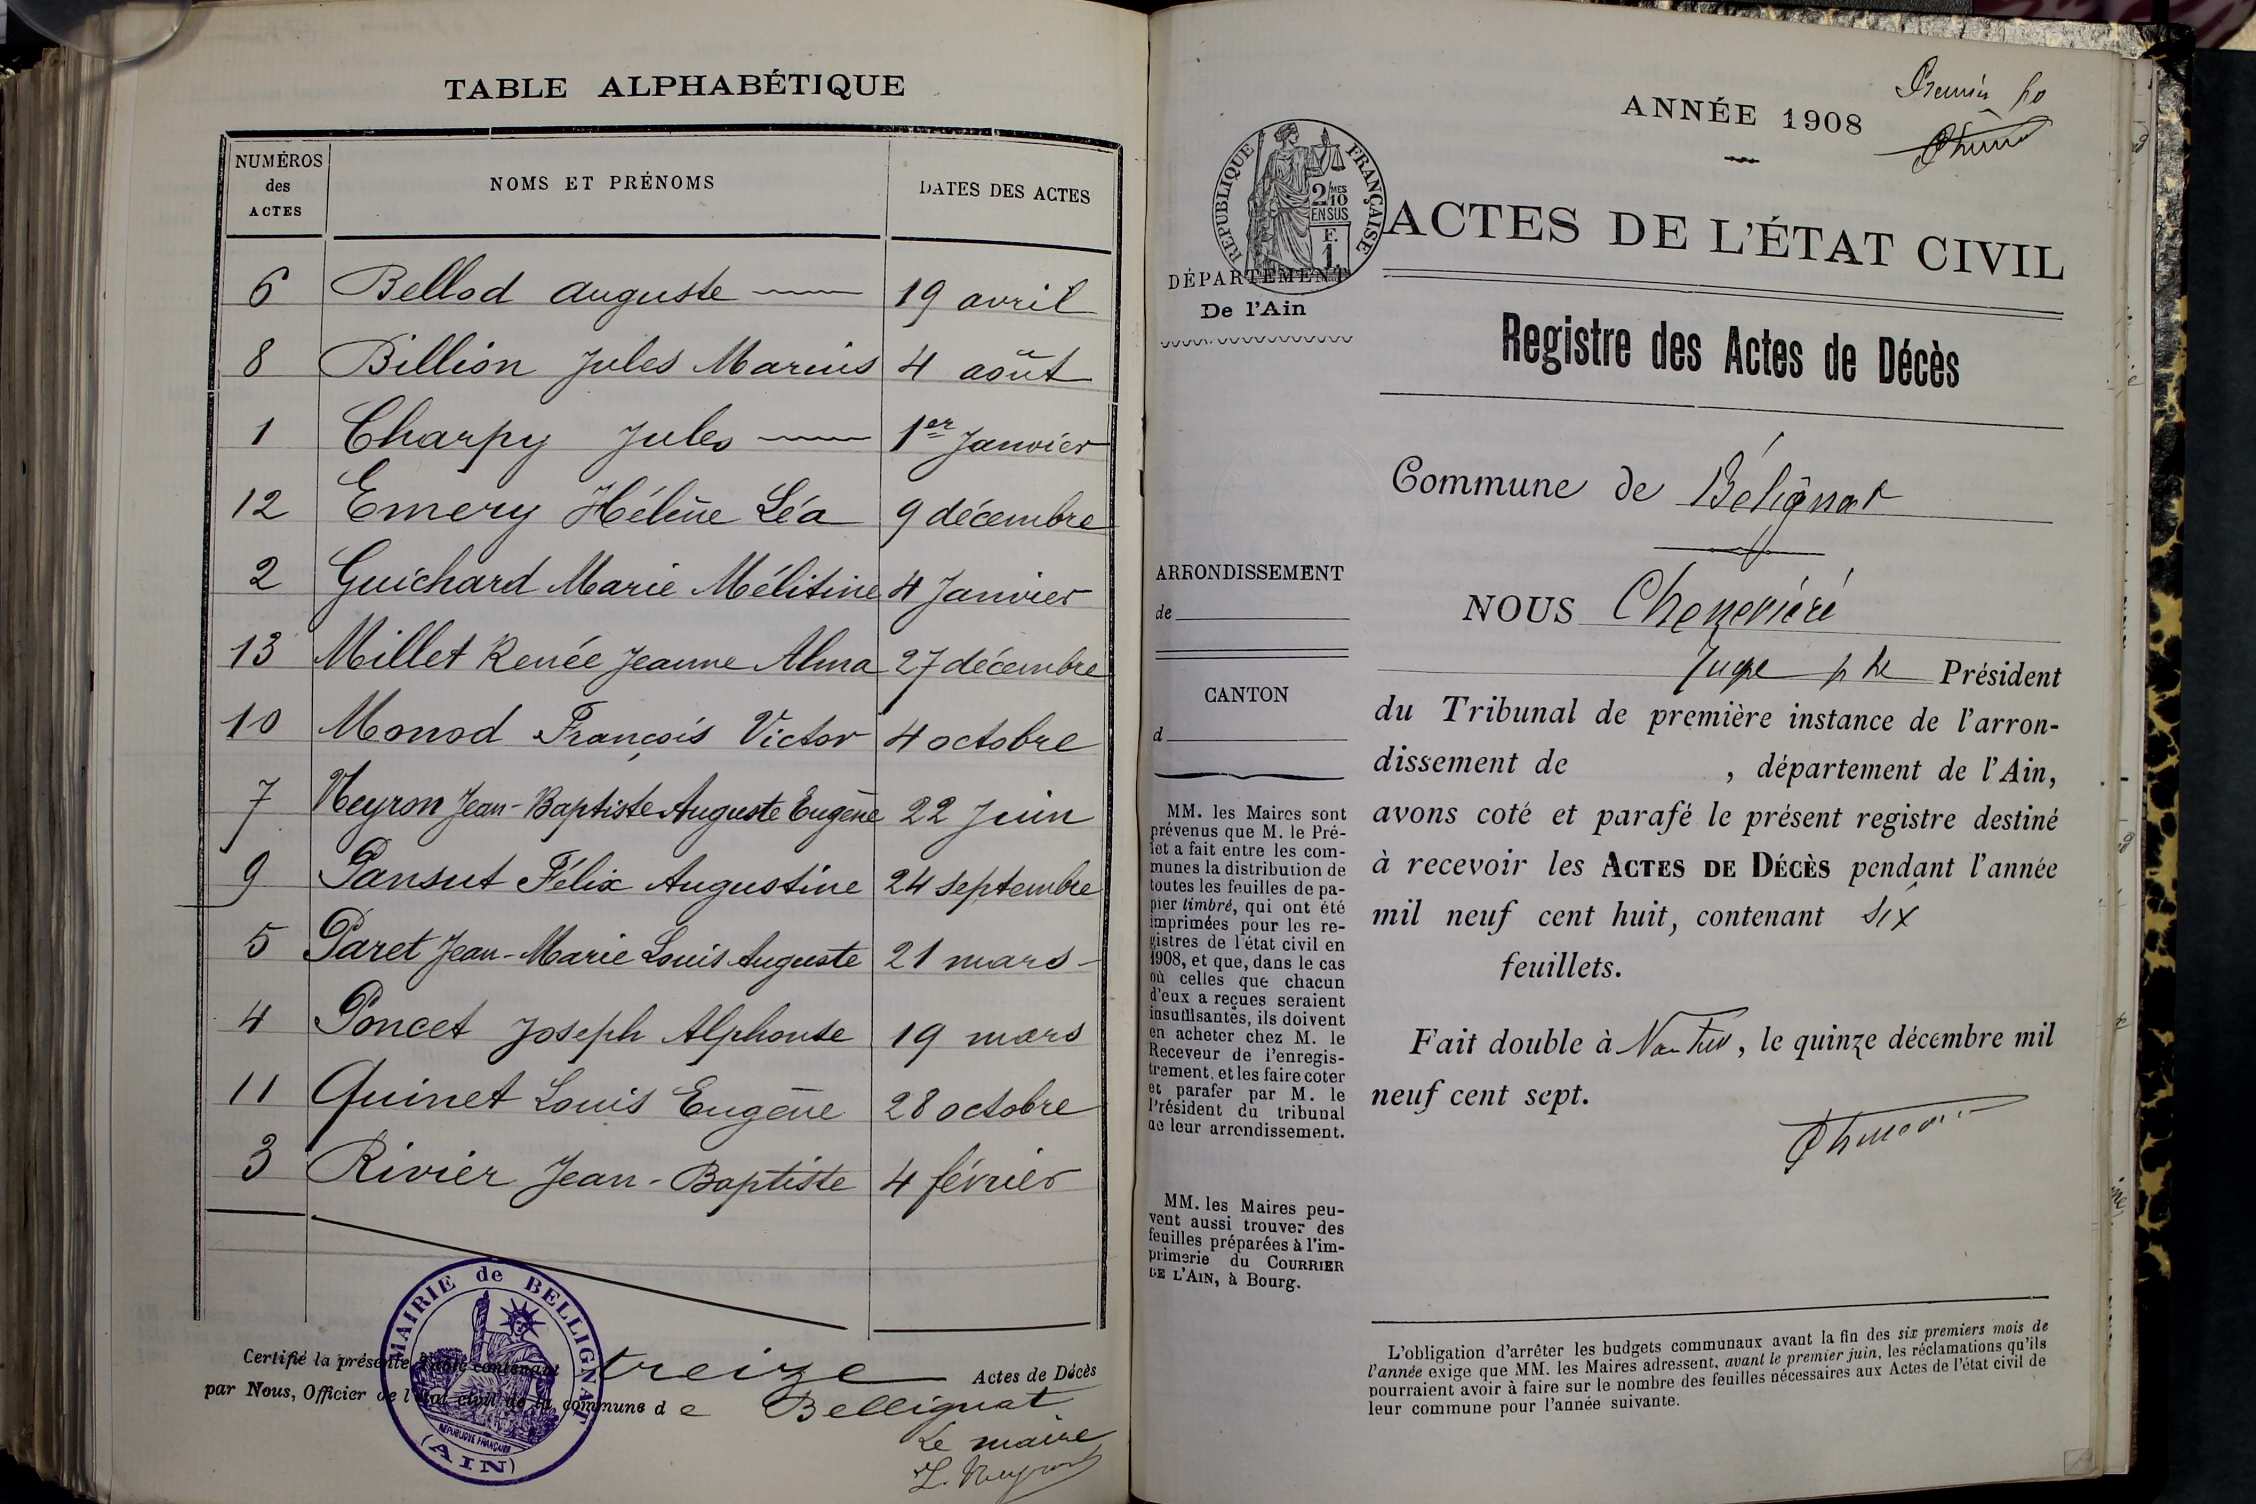 TABLE ALPHABÉTIQUE
NUMÉROS des ACTES
NOMS ET PRÉNOMS
DATES DES ACTES
6 Bellod Auguste 19 avril
8 Billion Jules Marius 4 août
1 Charpy Jules 1er Janvier
12 Emery Hélène Léa 9 décembre
2 Guichard Marie Mélitine 4 Janvier
13 Millet Renée Jeanne Alma 27 décembre
10 Monod François Victor 4 octobre
7 Neyron Jean-Baptiste Auguste Eugène 22 Juin
9 Pansut Félix Augustine 24 septembre
5 Paret Jean-Marie Louis Auguste 21 mars
4 Poncet Joseph Alphonse 19 mars
11 Quinet Louis Eugène 28 octobre
3 Rivier Jean-Baptiste 4 février
Certifié la présente Table contenant treize Actes de Décès
par Nous, Officier de l'état civil de la commune de Bellignat
Le maire
MAIRIE de BELLIGNAT
RÉPUBLIQUE FRANÇAISE
(AIN)
Premier
ANNÉE 1908
RÉPUBLIQUE FRANÇAISE
2/10 MES
EN SUS
F.
1
ACTES DE L'ÉTAT CIVIL
DÉPARTEMENT
De l'Ain
Registre des Actes de Décès
Commune de Bélignat
ARRONDISSEMENT
de
CANTON
d
NOUS Chenevière
Juge Président
du Tribunal de première instance de l'arron-
dissement de , département de l'Ain,
avons coté et parafé le présent registre destiné
à recevoir les ACTES DE DÉCÈS pendant l'année
mil neuf cent huit, contenant six
feuillets.
Fait double à Nantua, le quinze décembre mil
neuf cent sept.
MM. les Maires sont
prévenus que M. le Pré-
fet a fait entre les com-
munes la distribution de
toutes les feuilles de pa-
pier timbré, qui ont été
imprimées pour les re-
gistres de l'état civil en
1908, et que, dans le cas
où celles que chacun
d'eux a reçues seraient
insuffisantes, ils doivent
en acheter chez M. le
Receveur de l'enregis-
trement, et les faire coter
et parafer par M. le
Président du tribunal
de leur arrondissement.
MM. les Maires peu-
vent aussi trouver des
feuilles préparées à l'im-
primerie du COURRIER
DE L'AIN, à Bourg.
L'obligation d'arrêter les budgets communaux avant la fin des six premiers mois de
l'année exige que MM. les Maires adressent, avant le premier juin, les réclamations qu'ils
pourraient avoir à faire sur le nombre des feuilles nécessaires aux Actes de l'état civil de
leur commune pour l'année suivante.